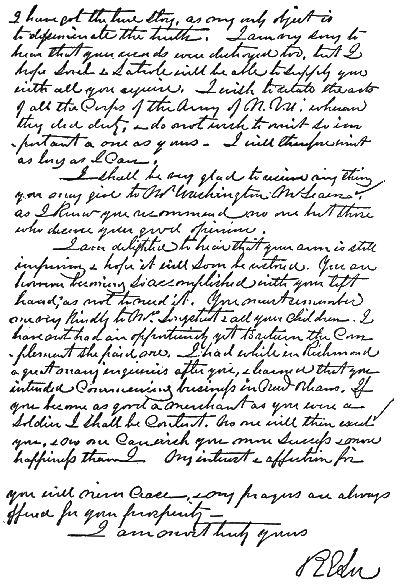 I have got the true story, as my only object is
to disseminate the truth. I am very sorry to
hear that your records were destroyed too, but I
hope Sorrel & Latrobe will be able to supply you
with all you require. I wish to relate the acts
of all the Corps of the Army of N. Va. wherever
they did duty, & do not wish to omit so im
-portant a one as yours - I will therefore wait
as long as I can.
I shall be very glad to receive any thing
you may give to Mr Washington McLean,
as I know you recommend no one but those
who deserve your good opinion.
I am delighted to hear that your arm is still
improving & hope it will soon be restored. You are
however becoming so accomplished with your left
hand, as not to need it. You must remember
me very kindly to Mrs Longstreet & all your children. I
have not had an opportunity yet to return the Com
-pliment she paid me. I had while in Richmond
a great many inquiries after you, & learned that you
intended Commencing business in New Orleans. If
you become as good a merchant as you were a
Soldier I shall be Content. No one will then excel
you, & no one Can wish you more success & more
happiness than I My interest & affection for
you will never Cease, & my prayers are always
offered for your prosperity -
I am most truly yours
R E Lee